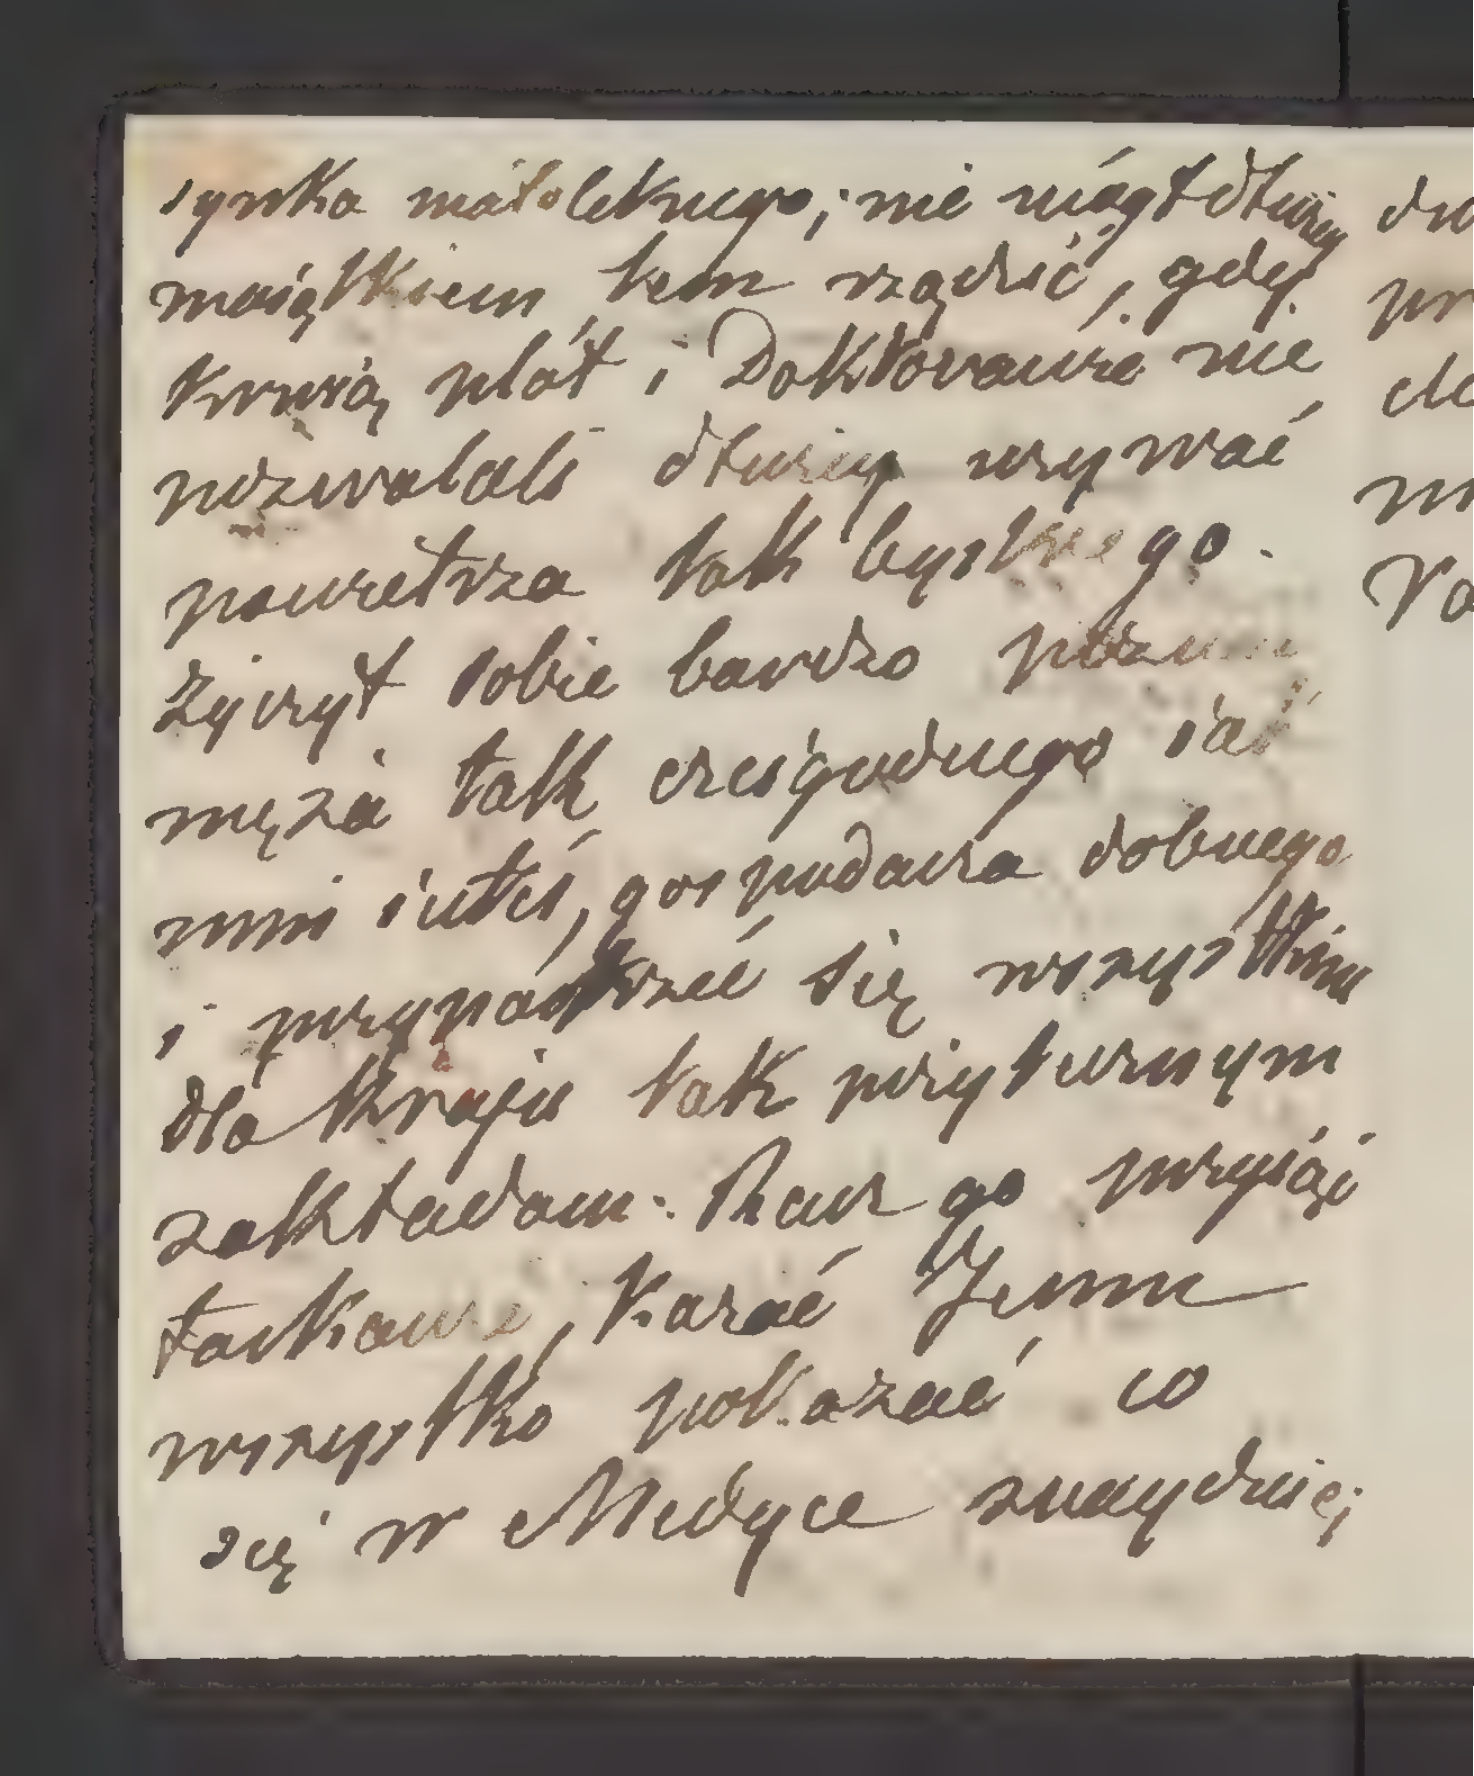 synka małoletnego; nie mógł dłużey
maiątkiem tem rządzić, gdy
krwią plół i Doktorowie nie
pozwalali dłużey używać
powietrza tak bystrego.
Życzył sobie bardzo poznać
męża tak czcigodnego iak
mni iuteś, gospodarza dobrego
i przypatrzeć się wszystkim
dla kraju tak pożytecznym
zakładom. Racz go przyiąć
łaskawie, kazać Jemu
wszystko pokazać co
się w Medyce znayduie;